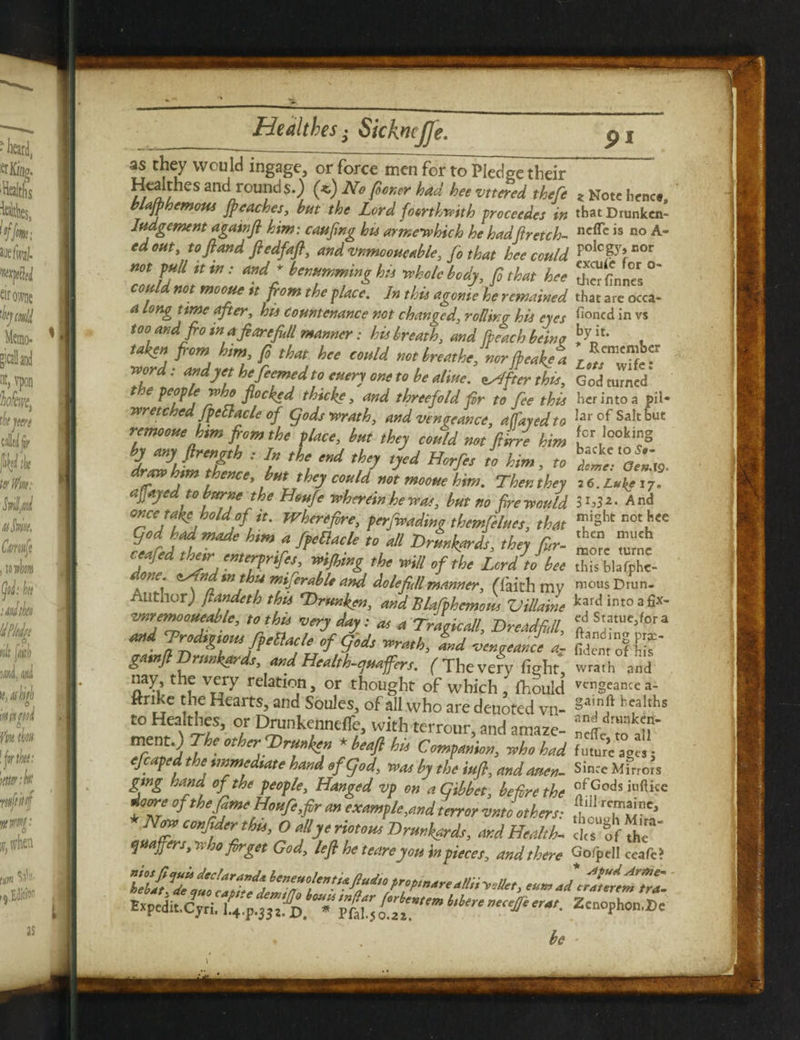 Healthes; Sicknesse.
91
as they would ingage, or force men for to Pledge their
Healthes and rounds.) (z) No sooner had hee vttered these
blasphemous speaches, but the Lord foorthwith proceedes in
Iudgement against him: causing his arme which he had stretch-
ed out, to stand stedfast, and vnmooueable, so that hee could
not pull it in: and * benumming his whole body, so that hee
could not mooue it from the place. In this agonie he remained
a long time after, his countenance not changed, rolling his eyes
too and fro in a fearefull manner: his breath, and speach being
taken from him, so that hee could not breathe, nor speake a
word: and yet he seemed to euery one to be aliue. After this,
the people who flocked thicke, and threefold for to see this
wretched spectacle of Gods wrath, and vengeance, assayed to
remooue him from the place, but they could not stirre him
by any strength: In the end they tyed Horses to him, to
draw him thence, but they could not mooue him. Then they
assayed to burne the House wherein he was, but no fire would
once take hold of it. Wherefore, perswading themselues, that
God had made him a spectacle to all Drunkards, they sur-
ceased their enterprises, wishing the will of the Lord to bee
done. And in this miserable and dolefull manner, (saith my
Author) standeth this Drunken, and Blasphemous Villaine
vnremooueable, to this very day: as a Tragicall, Dreadfull,
and Prodigious spectacle of Gods wrath, and vengeance a-
gainst Drunkards, and Health-quaffers. (The very sight,
nay, the very relation, or thought of which, should
strike the Hearts, and Soules, of all who are deuoted vn-
to Healthes, or Drunkennesse, with terrour, and amaze-
ment.) The other Drunken * beast his Companion, who had
escaped the immediate hand of God, was by the iust, and auen-
ging hand of the people, Hanged vp on a Gibbet, before the
doore of the same House, for an example, and terror vnto others:
* Now consider this, O all ye riotous Drunkards, and Health-
quaffers, who forget God, lest he teare you in pieces, and there
z Note hence,
that Drunken-
nesse is no A-
pology, nor
excuse for o-
ther sinnes
that are occa-
sioned in vs
by it.
* Remember
Lots wife:
God turned
her into a pil-
lar of Salt but
for looking
backe to So-
dome: Gen.19.
26. Luke 17.
31,32. And
might not hee
then much
more turne
this blasphe-
mous Drun-
kard into a fix-
ed Statue, for a
standing præ-
sident of his
wrath and
vengeance a-
gainst healths
and drunken-
nesse, to all
future ages;
Since Mirrors
of Gods iustice
still remaine,
though Mira-
cles of the
Gospell cease?
* Apud Arme-
nios si quis declaranda beneuolentiæ studio propinare alii vellet, eum ad craterem tra-
hebat, de quo capite demisso bouis instar sorbentem bibere necesse erat. Zenophon. De
Expedit. Cyri. l.4. p.332. D. * Psal.50.22.
be
heard,
Healths
Memo-
vpon
as